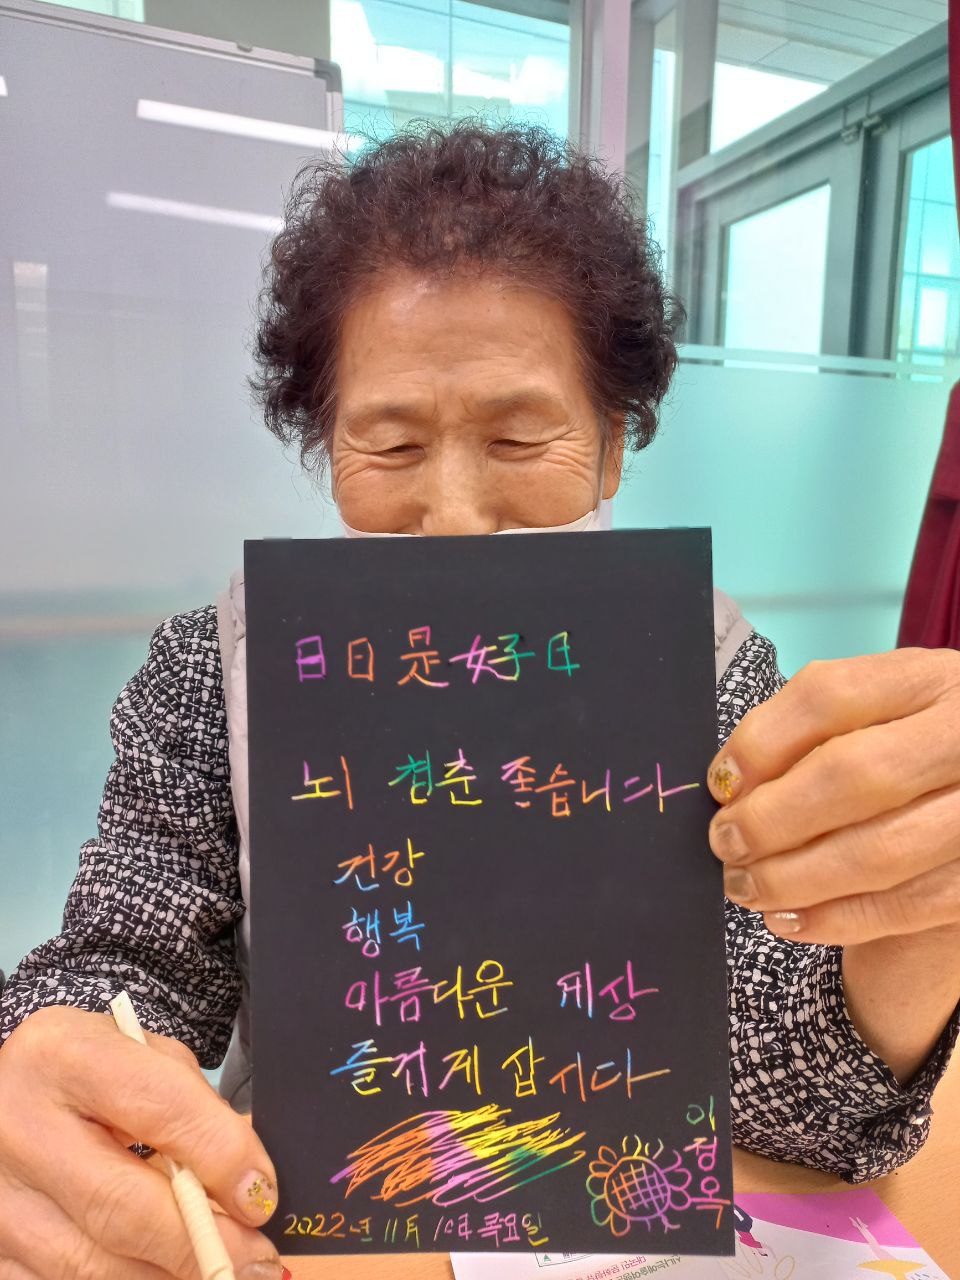 日日是好日
뇌 청춘 좋습니다
건강
행복
아름다운 세상
즐겁게 삽시다
이정옥
2022년 11月 10日 목요일